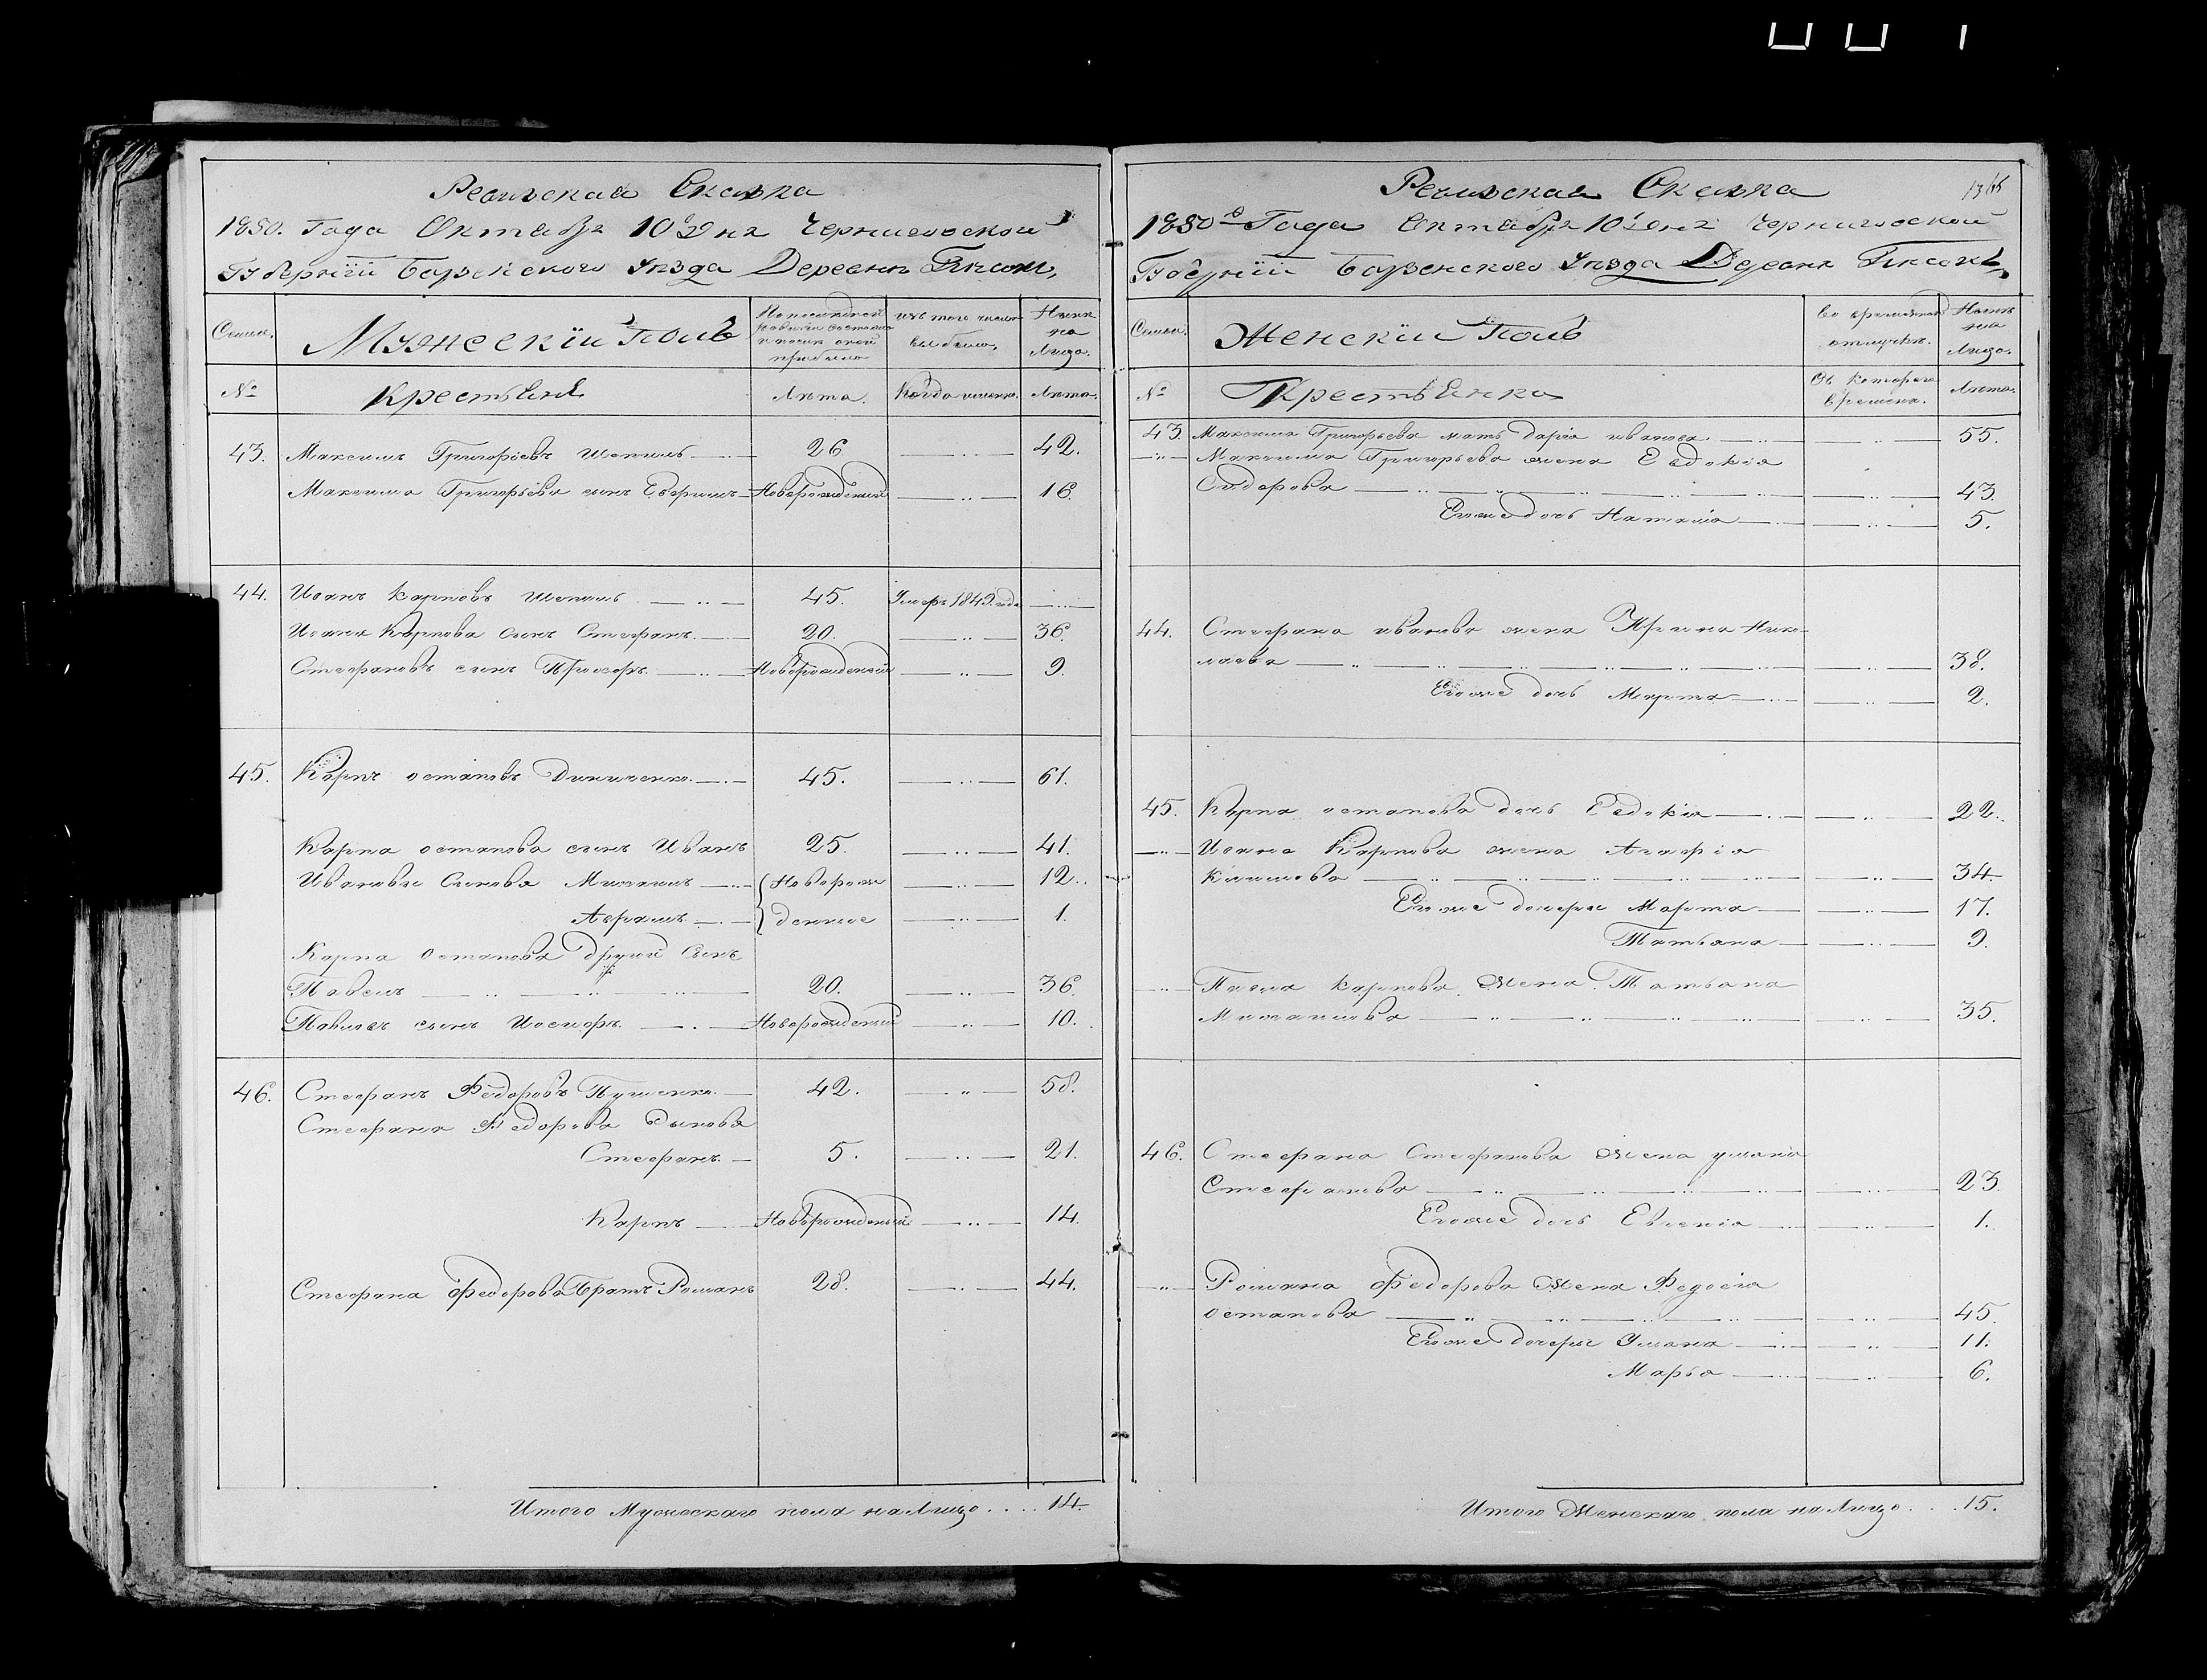 Ревизская Сказка
1850. Года Октября 10 дня Черниговской
Губерніи Борзенского Уезда Деревни
Семьи.
Мужескій Полъ
По последней ревизіи состояло и после оной прибыло
изъ того числа выбыло,
Ныне на Лицо.
№
Крестьяне
Лета.
Когда именно.
Лета.
43. Максимъ Григорьевъ Шепель 26 42.
Максима Григорьева сынъ Ефримъ Новорожденный 16.
44. Иванъ Карповъ Шепель 45. Умеръ 1849. года
Ивана Карпова сынъ Стефанъ 20. 36.
Стефановъ сынъ Прохоръ Новорожденный 9.
45. Карпъ остаповъ 45. 61.
Карпа остапова сынъ Иванъ 25. 41.
Ивановы Сыновья Михаилъ Новорож 12.
Аврамъ денные 1.
Карпа Остапова другой Сынъ
Павелъ 20. 36.
Павловъ сынъ Иосифъ Новорожденный 10.
46. Стефанъ Федоровъ 42. 58.
Стефана Федорова Сыновья
Стефанъ 5. 21.
Карпъ Новорожденный 14.
Стефана Федорова Братъ Романъ 28. 44.
Итого Мужескаго пола на Лицо 14.
Ревизская Сказка
1850 Года Октября 10 дня Черниговской
Губерніи Борзенского Уезда Деревни
Семьи.
Женскій Полъ
Во временной отлучке.
Ныне на Лицо.
№
Крестьянка
Съ которого времени.
Лета.
43. Максима Григорьева мать Дарія иванова 55.
Максима Григорьева жена Евдокія
Сидорова 43.
Егоже дочь Наталія 5.
44. Стефана иванова жена Ирина Нико-
лаева 38.
Егоже дочь Марта 2.
45. Карпа остапова дочь Евдокія 22.
Ивана Карпова жена Агафія
Климова 34.
Егоже дочери Марта 17.
Татьана 9.
Павла Карпова Жена Татьана
Михаилова 35.
46. Стефана Стефанова Жена улиана
Стефанова 23
Егоже дочь Евгенія 1.
Романа Федорова Жена Федосіа
остапова 45
Егоже дочери Улиана 11.
Марья 6.
Итого Женскаго пола на Лицо 15.